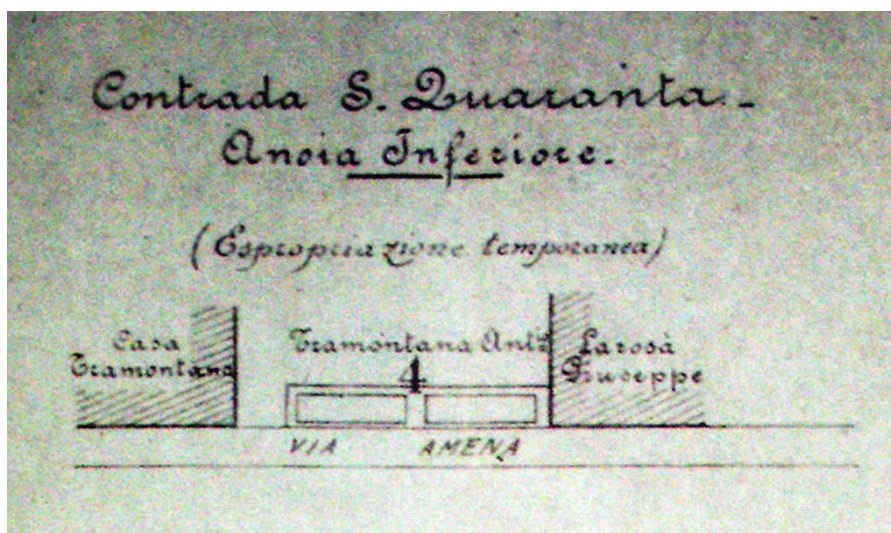 Contrada S. Quaranta.-
Anoia Inferiore.
(Espropriazione temporanea)
Casa
Tramontana
Tramontana Ant.
Larosà
Giuseppe
4
VIA AMENA